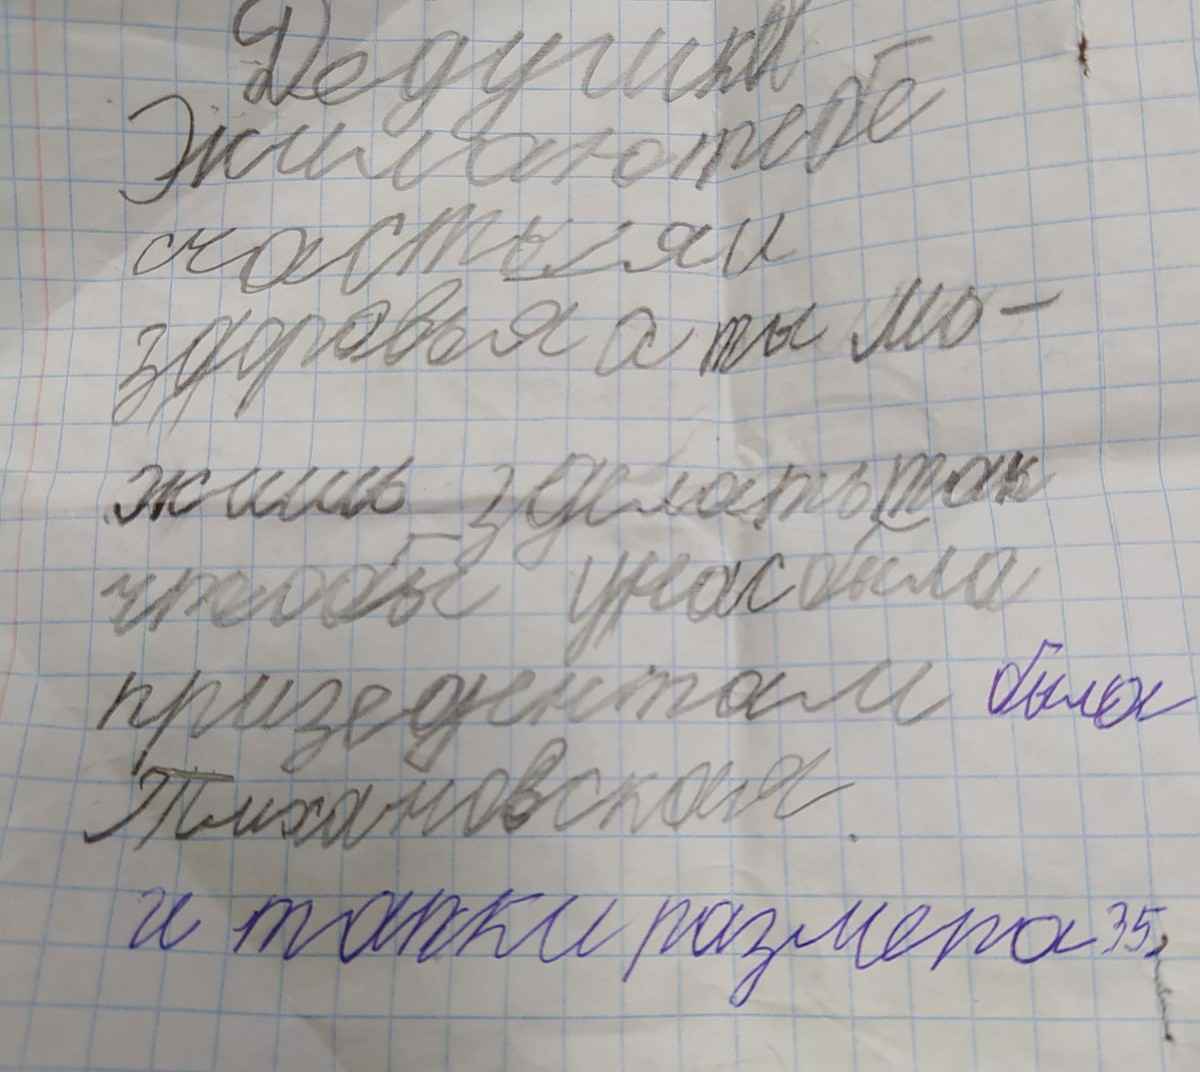 Дедушка
Жилаютебе
счастьяи
здоровья а ты мо-
жишь зделатьтак
чтобы унасбыла
призедентам была
Тихановская.
и тапки размера 35,